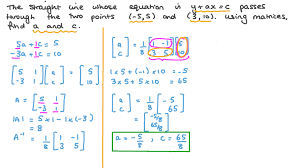 The straight line whose equation is y+ax=c passes
through the two points (-5,5) and (3,10). Using matrices,
find a and c.
5a+1c=5
-3a+1c=10
[5 1
-3 1] [a
c] = [5
10]
A = [5 1
-3 1]
|A| = 5×1-1×(-3)
= 8
A⁻¹ = 1/8 [1 -1
3 5]
[a
c] = 1/8 [1 -1
3 5] [5
10]
1×5+(-1)×10 = -5
3×5+5×10 = 65
[a
c] = 1/8 [-5
65]
= [-5/8
65/8]
a = -5/8, c = 65/8